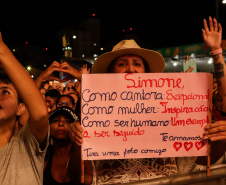 Simone,
Como cantora: Sapiona!
Como mulher: Inspiração
Como ser humano: Um exemplo
a ser seguido
Te amamos
♥♥♥
Tira uma foto comigo